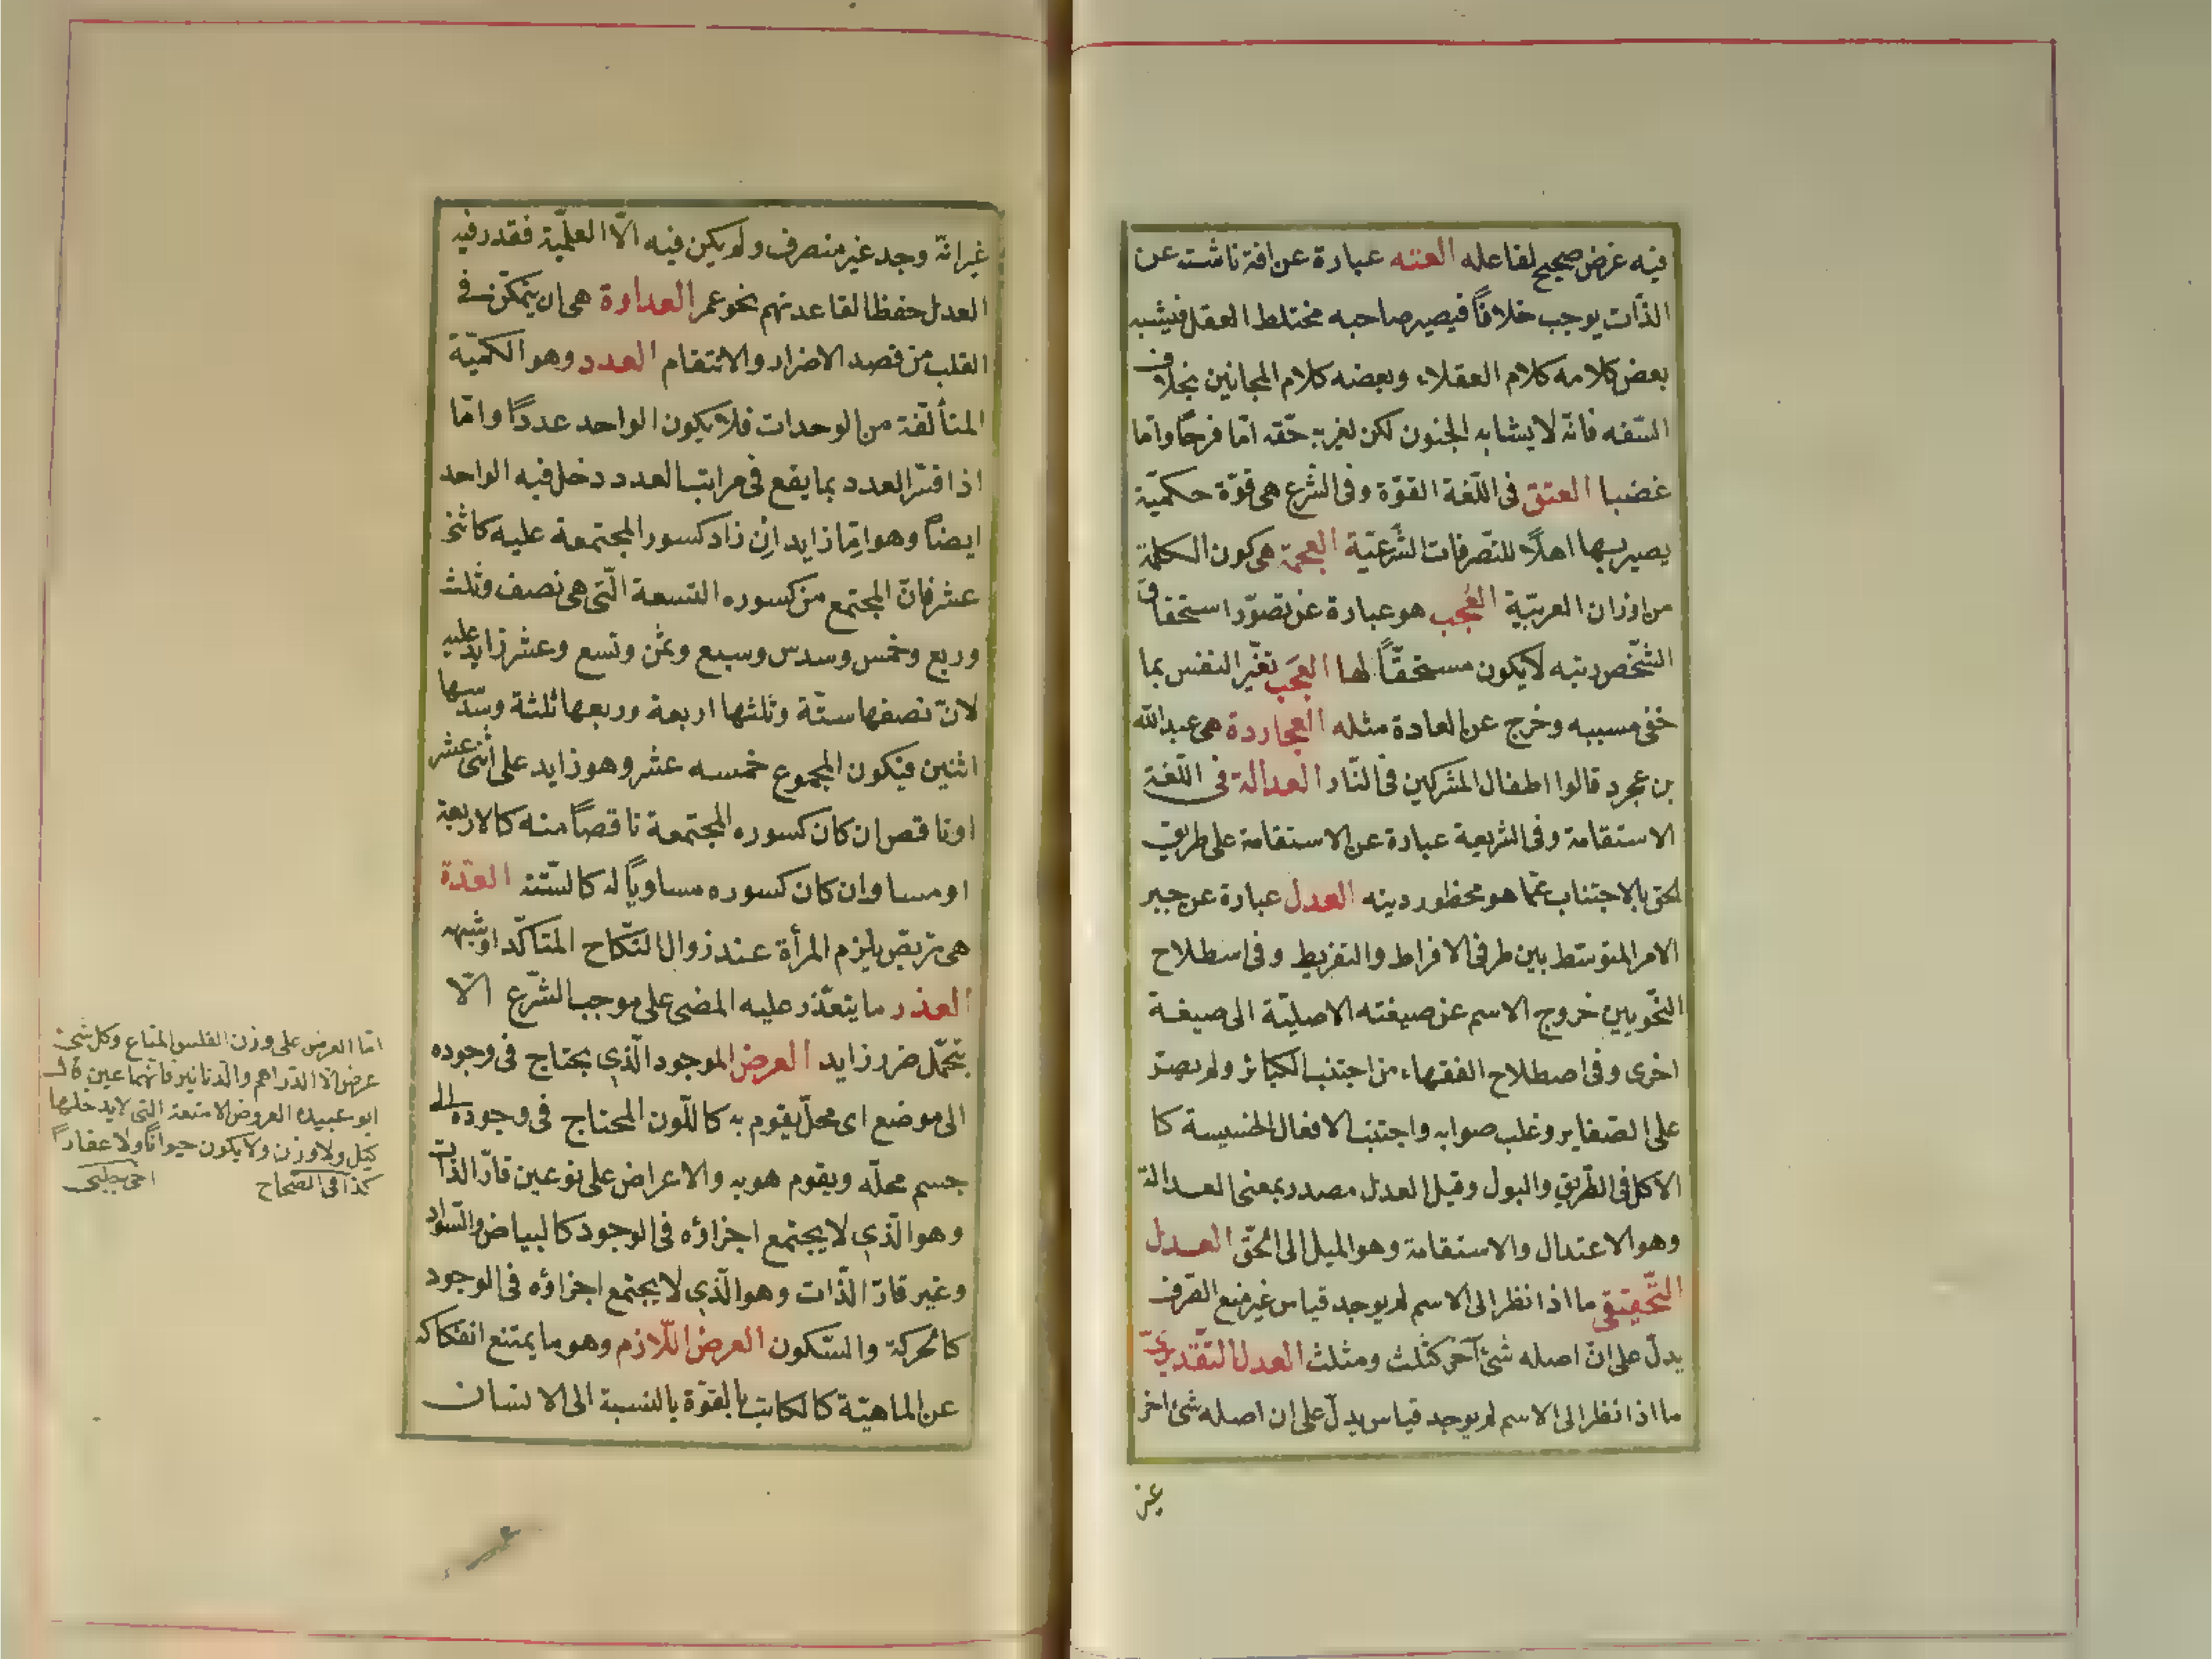 فيه غرض صحيح لفاعله العته عبارة عن افة ناشئة عن
الذّات يوجب خلافاً فيصير صاحبه مختلط العقل فيشبه
بعض كلامه كلام العقلاء وبعضه كلام المجانين بخلاف
السّفه فانّه لا يشابه الجنون لكن لغربه خّقه امّا فرحاً وامّا
غضبا العتق فى اللّغة القوّة وفى الشّرع هى قوّة حكميّة
يصير بها اهلاً للتّصرفات الشّرعيّة العجمة هى كون الكلمة
من اوزان العربيّة العُجب هو عبارة عن تصوّر استحقاق
الشّخص رتبه لا يكون مستحقّاً لها العَجب تغيّر النفس بما
خفى مسببه وخرج عن العادة مثله العجاردة هى عبد الله
بن عجرد قالوا اطفال المشركين فى النّار العدالة فى اللّغة
الاستقامة وفى الشريعة عبارة عن الاستقامة على طريق
لحق بالاجتناب عمّا هو محظور دينه العدل عبارة عن جبر
الامر المتوسّط بين طرفى الافراط والتفريط وفى اسطلاح
النّحويين خروج الاسم عن صيغته الاصليّة الى صيغة
اخرى وفى اصطلاح الفقهاء من اجتنب الكبائر ولم يصرّ
على الصّغاير وغلب صوابه واجتنب الافعال الخسيسة كا
الاكل فى الطّريق والبول وقيل العدل مصدر بمعنى العدالة
وهو الاعتدال والاستقامة وهو الميل الى الحقّ العدل
التّحقيقى ما اذا نظر الى الاسم لم يوجد قياس غير منع الصّرف
يدلّ على انّ اصله شئ آخر كثلث ومثلث العدل التّقديرىّ
ما اذا نظر الى الاسم لم يوجد قياس يدلّ على ان اصله شئ اخر
غير
غير انّه وجد غير منصرف ولم يكن فيه الّا العلميّة فقدر فيه
العدل حفظا لقاعدتهم نحو عمر العداوة هى ان يتمكّن فى
القلب من قصد الاضرار والانتقام العدد وهو الكميّة
المتألّفة من الوحدات فلا يكون الواحد عدداً وامّا
اذا فسّر العدد بما يقع فى مراتب العدد دخل فيه الواحد
ايضاً وهو امّا زايد ان زاد كسور المجتمعة عليه كاثنى
عشر فانّ المجتمع من كسوره التسعة الّتى هى نصف وثلث
وربع وخمس وسدس وسبع وثمن وتسع وعشر زايد عليه
لانّ نصفها ستّة وثلثها اربعة وربعها ثلثة وسدسها
اثنين فيكون المجموع خمسه عشر وهو زايد على اثنى عشر
او ناقص ان كان كسوره المجتمعة ناقصاً منه كالاربعة
او مساو ان كان كسوره مساوياً له كالسّتّة العدّة
هى تربص يلزم المرأة عند زوال النّكاح المتأكّد او شبهه
العذر ما يتعذّر عليه المضى على موجب الشّرع الّا
بتحمّل ضرر زايد العرض الموجود الّذى يحتاج فى وجوده
الى موضع اى محلّ يقوم به كاللّون المحتاج فى وجوده الى
جسم محلّه ويقوم هو به والاعراض على نوعين قارّ الذّات
وهو الّذى لا يجتمع اجزاؤه فى الوجود كالبياض والسّواد
وغير قارّ الذّات وهو الّذى لا يجتمع اجزاؤه فى الوجود
كالحركة والسّكون العرض اللّازم وهو ما يمتنع انفكاكه
عن الماهيّة كالكاتب بالقوّة بالنسبة الى الانسان
امّا العرض على وزن الفلس المتاع وكل شئ
عرض الا الدّراهم والدّنانير فانّهما عين قال
ابو عبيده العروض الامتعة التى لا يدخلها
كيل ولا وزن ولا يكون حيواناً ولا عقاراً
كذا فى الصّحاح